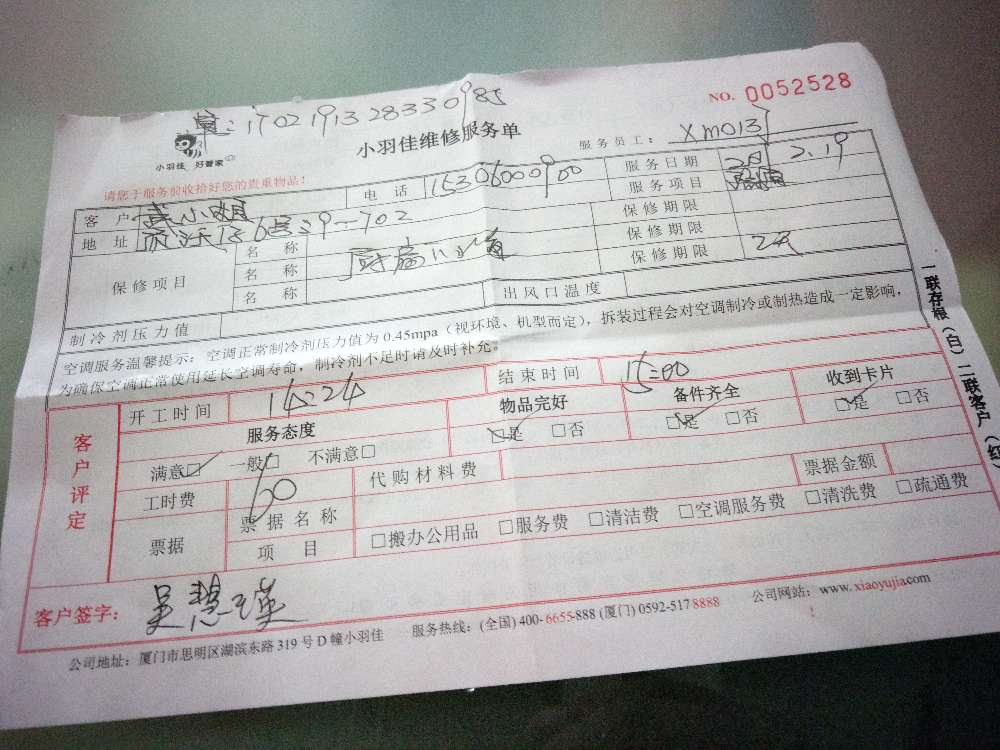 NO. 0052528
:1702191328330985
小羽佳 好管家
小羽佳维修服务单
服务员工: XM013
请您于服务前收拾好您的贵重物品!
客户 小姐 电话 15306000900 服务日期 2.19
地址 9-702 服务项目
保修项目 名称 厨 保修期限
名称 保修期限
名称 保修期限 2天
制冷剂压力值 出风口温度
空调服务温馨提示: 空调正常制冷剂压力值为 0.45mpa (视环境、机型而定), 拆装过程会对空调制冷或制热造成一定影响,
为确保空调正常使用延长空调寿命, 制冷剂不足时请及时补充。
客户评定
开工时间 14:24 结束时间 15:00
服务态度 物品完好 备件齐全 收到卡片
满意□ 一般□ 不满意□ □是 □否 □是 □否 □是 □否
工时费 60 代购材料费 票据金额
票据 票据名称
项目 □搬办公用品 □服务费 □清洁费 □空调服务费 □清洗费 □疏通费
客户签字: 吴慧瑛
公司地址: 厦门市思明区湖滨东路 319 号 D 幢小羽佳 服务热线: (全国) 400-6655-888 (厦门) 0592-517 8888 公司网站: www.xiaoyujia.com
一联存根(白) 二联客户(红